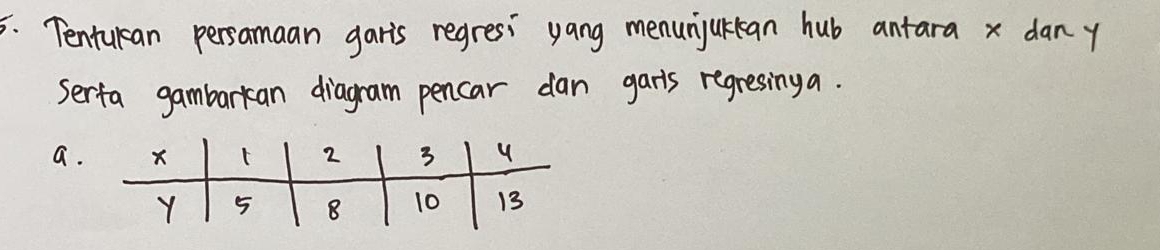 5. Tentukan persamaan garis regresi yang menunjukkan hub antara x dan y
Serta gambarkan diagram pencar dan garis regresinya.
a. x | 1 | 2 | 3 | 4
y | 5 | 8 | 10 | 13